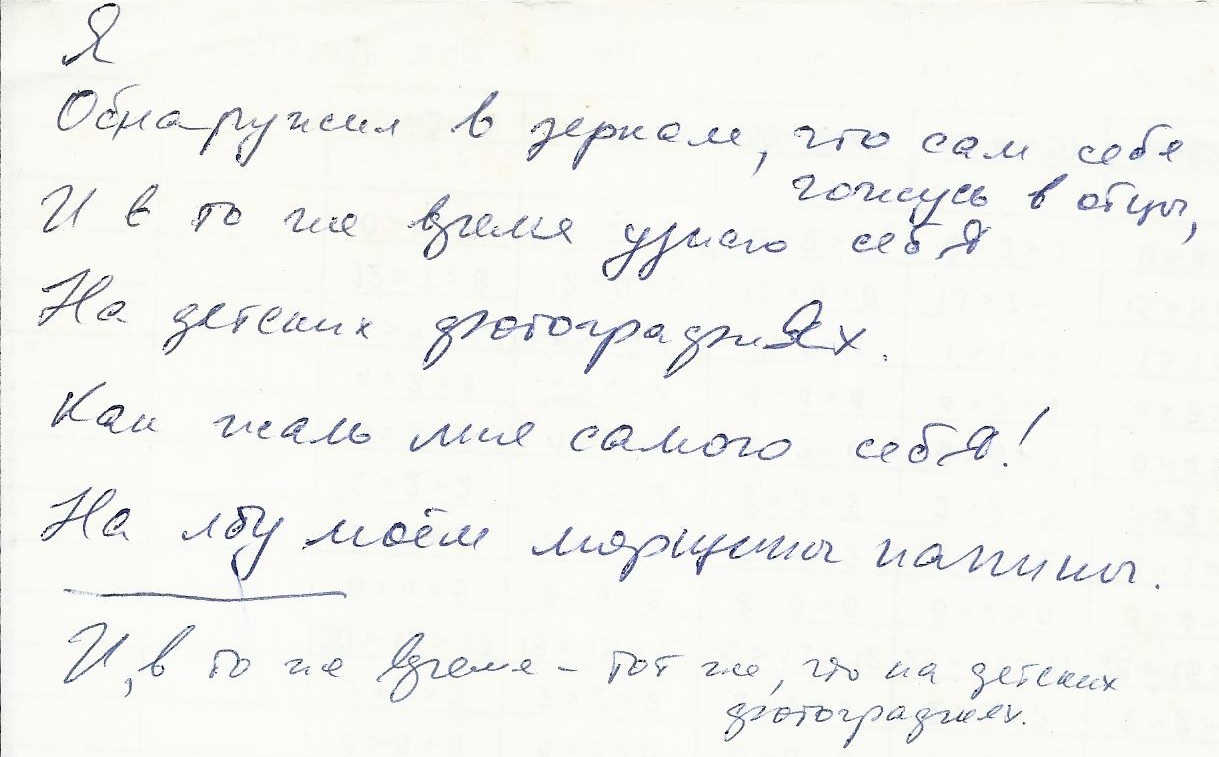 Я
Обнаружил в зеркале, что сам себе
гожусь в отцы,
И в то же время узнаю себЯ
На детских фотографиЯх.
Как жаль мне самого себЯ!
На лбу моём морщины папины.
И, в то же время – тот же, что на детских
фотографиях.